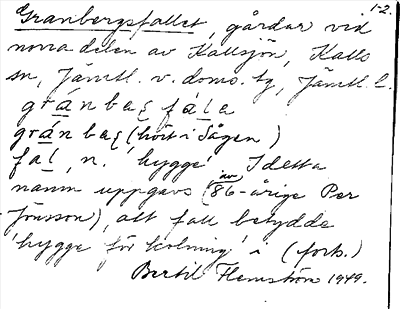 1-2.
Granbergsfallet, gårdar vid
norra delen av Kallsjön, Kalls
sn, Jämtl. v. doms. tg, Jämtl. l.
gránbaʃ fála
grán baʃ (hört i Sågen)
fal, n. 'hygge' I detta
namn uppgavs (av 86-årige Per
Jönsson), att fall betydde
'hygge för kolning' i (forts.)
Bertil Flemström 1949.